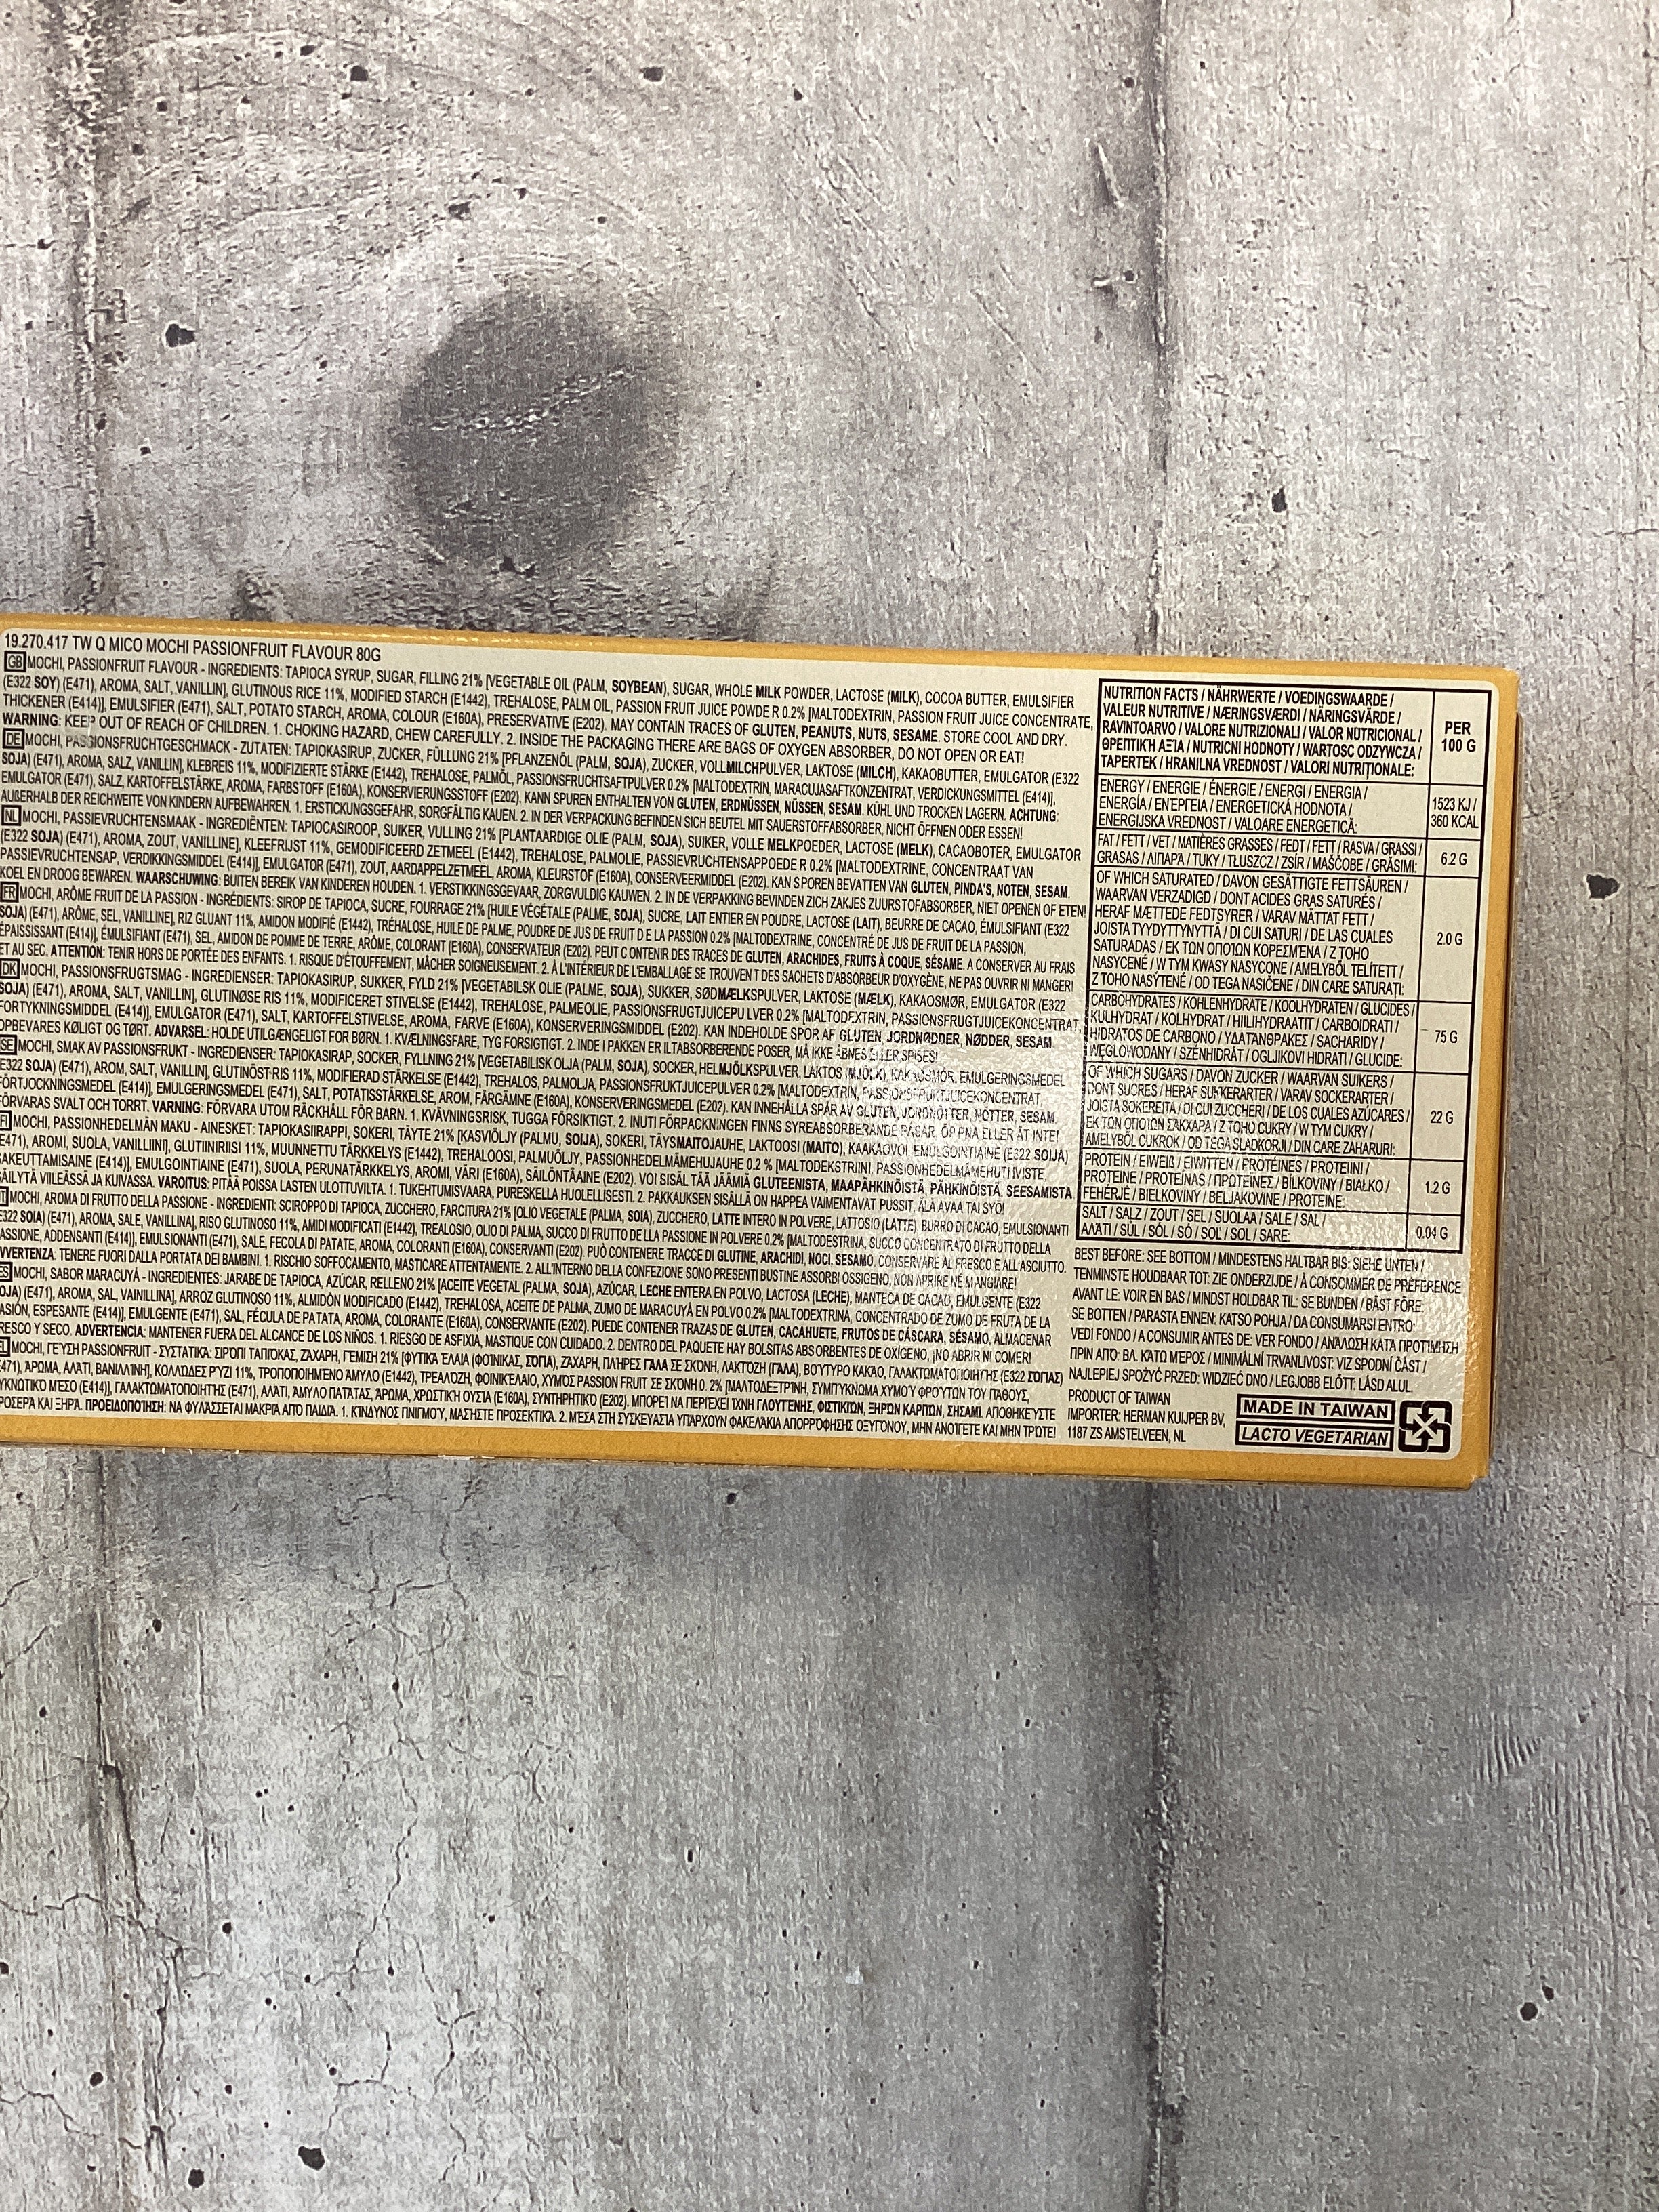 19.270.417 TW Q MICO MOCHI PASSIONFRUIT FLAVOUR 80G
GB MOCHI, PASSIONFRUIT FLAVOUR - INGREDIENTS: TAPIOCA SYRUP, SUGAR, FILLING 21% [VEGETABLE OIL (PALM, SOYBEAN), SUGAR, WHOLE MILK POWDER, LACTOSE (MILK), COCOA BUTTER, EMULSIFIER
(E322 SOY) (E471), AROMA, SALT, VANILLIN], GLUTINOUS RICE 11%, MODIFIED STARCH (E1442), TREHALOSE, PALM OIL, PASSION FRUIT JUICE POWDE R 0.2% [MALTODEXTRIN, PASSION FRUIT JUICE CONCENTRATE,
THICKENER (E414)], EMULSIFIER (E471), SALT, POTATO STARCH, AROMA, COLOUR (E160A), PRESERVATIVE (E202). MAY CONTAIN TRACES OF GLUTEN, PEANUTS, NUTS, SESAME. STORE COOL AND DRY.
WARNING: KEEP OUT OF REACH OF CHILDREN. 1. CHOKING HAZARD, CHEW CAREFULLY. 2. INSIDE THE PACKAGING THERE ARE BAGS OF OXYGEN ABSORBER, DO NOT OPEN OR EAT!
DE MOCHI, PASSIONSFRUCHTGESCHMACK - ZUTATEN: TAPIOKASIRUP, ZUCKER, FÜLLUNG 21% [PFLANZENÖL (PALM, SOJA), ZUCKER, VOLLMILCHPULVER, LAKTOSE (MILCH), KAKAOBUTTER, EMULGATOR (E322
SOJA) (E471), AROMA, SALZ, VANILLIN], KLEBREIS 11%, MODIFIZIERTE STÄRKE (E1442), TREHALOSE, PALMÖL, PASSIONSFRUCHTSAFTPULVER 0.2% [MALTODEXTRIN, MARACUJASAFTKONZENTRAT, VERDICKUNGSMITTEL (E414)],
EMULGATOR (E471), SALZ, KARTOFFELSTÄRKE, AROMA, FARBSTOFF (E160A), KONSERVIERUNGSSTOFF (E202). KANN SPUREN ENTHALTEN VON GLUTEN, ERDNÜSSEN, NÜSSEN, SESAM. KÜHL UND TROCKEN LAGERN. ACHTUNG:
AUßERHALB DER REICHWEITE VON KINDERN AUFBEWAHREN. 1. ERSTICKUNGSGEFAHR, SORGFÄLTIG KAUEN. 2. IN DER VERPACKUNG BEFINDEN SICH BEUTEL MIT SAUERSTOFFABSORBER, NICHT ÖFFNEN ODER ESSEN!
NL MOCHI, PASSIEVRUCHTENSMAAK - INGREDIËNTEN: TAPIOCASIROOP, SUIKER, VULLING 21% [PLANTAARDIGE OLIE (PALM, SOJA), SUIKER, VOLLE MELKPOEDER, LACTOSE (MELK), CACAOBOTER, EMULGATOR
(E322 SOJA) (E471), AROMA, ZOUT, VANILLINE], KLEEFRIJST 11%, GEMODIFICEERD ZETMEEL (E1442), TREHALOSE, PALMOLIE, PASSIEVRUCHTENSAPPOEDE R 0.2% [MALTODEXTRINE, CONCENTRAAT VAN
PASSIEVRUCHTENSAP, VERDIKKINGSMIDDEL (E414)], EMULGATOR (E471), ZOUT, AARDAPPELZETMEEL, AROMA, KLEURSTOF (E160A), CONSERVEERMIDDEL (E202). KAN SPOREN BEVATTEN VAN GLUTEN, PINDA'S, NOTEN, SESAM.
KOEL EN DROOG BEWAREN. WAARSCHUWING: BUITEN BEREIK VAN KINDEREN HOUDEN. 1. VERSTIKKINGSGEVAAR, ZORGVULDIG KAUWEN. 2. IN DE VERPAKKING BEVINDEN ZICH ZAKJES ZUURSTOFABSORBER, NIET OPENEN OF ETEN!
FR MOCHI, ARÔME FRUIT DE LA PASSION - INGRÉDIENTS: SIROP DE TAPIOCA, SUCRE, FOURRAGE 21% [HUILE VÉGÉTALE (PALME, SOJA), SUCRE, LAIT ENTIER EN POUDRE, LACTOSE (LAIT), BEURRE DE CACAO, ÉMULSIFIANT (E322
SOJA) (E471), ARÔME, SEL, VANILLINE], RIZ GLUANT 11%, AMIDON MODIFIÉ (E1442), TRÉHALOSE, HUILE DE PALME, POUDRE DE JUS DE FRUIT D E LA PASSION 0.2% [MALTODEXTRINE, CONCENTRÉ DE JUS DE FRUIT DE LA PASSION,
ÉPAISSISSANT (E414)], ÉMULSIFIANT (E471), SEL, AMIDON DE POMME DE TERRE, ARÔME, COLORANT (E160A), CONSERVATEUR (E202). PEUT C ONTENIR DES TRACES DE GLUTEN, ARACHIDES, FRUITS À COQUE, SÉSAME. A CONSERVER AU FRAIS
ET AU SEC. ATTENTION: TENIR HORS DE PORTÉE DES ENFANTS. 1. RISQUE D'ÉTOUFFEMENT, MÂCHER SOIGNEUSEMENT. 2. À L'INTÉRIEUR DE L'EMBALLAGE SE TROUVENT DES SACHETS D'ABSORBEUR D'OXYGÈNE, NE PAS OUVRIR NI MANGER!
DK MOCHI, PASSIONSFRUGTSMAG - INGREDIENSER: TAPIOKASIRUP, SUKKER, FYLD 21% [VEGETABILSK OLIE (PALME, SOJA), SUKKER, SØDMÆLKSPULVER, LAKTOSE (MÆLK), KAKAOSMØR, EMULGATOR (E322
SOJA) (E471), AROMA, SALT, VANILLIN], GLUTINØSE RIS 11%, MODIFICERET STIVELSE (E1442), TREHALOSE, PALMEOLIE, PASSIONSFRUGTJUICEPU LVER 0.2% [MALTODEXTRIN, PASSIONSFRUGTJUICEKONCENTRAT,
FORTYKNINGSMIDDEL (E414)], EMULGATOR (E471), SALT, KARTOFFELSTIVELSE, AROMA, FARVE (E160A), KONSERVERINGSMIDDEL (E202). KAN INDEHOLDE SPOR AF GLUTEN, JORDNØDDER, NØDDER, SESAM.
OPBEVARES KØLIGT OG TØRT. ADVARSEL: HOLDE UTILGÆNGELIGT FOR BØRN. 1. KVÆLNINGSFARE, TYG FORSIGTIGT. 2. INDE I PAKKEN ER ILTABSORBERENDE POSER, MÅ IKKE ÅBNES ELLER SPISES!
SE MOCHI, SMAK AV PASSIONSFRUKT - INGREDIENSER: TAPIOKASIRAP, SOCKER, FYLLNING 21% [VEGETABILISK OLJA (PALM, SOJA), SOCKER, HELMJÖLKSPULVER, LAKTOS (MJÖLK), KAKAOSMÖR, EMULGERINGSMEDEL
(E322 SOJA) (E471), AROM, SALT, VANILLIN], GLUTINÖST RIS 11%, MODIFIERAD STÄRKELSE (E1442), TREHALOS, PALMOLJA, PASSIONSFRUKTJUICEPULVER 0.2% [MALTODEXTRIN, PASSIONSFRUKTJUICEKONCENTRAT,
FÖRTJOCKNINGSMEDEL (E414)], EMULGERINGSMEDEL (E471), SALT, POTATISSTÄRKELSE, AROM, FÄRGÄMNE (E160A), KONSERVERINGSMEDEL (E202). KAN INNEHÅLLA SPÅR AV GLUTEN, JORDNÖTTER, NÖTTER, SESAM.
FÖRVARAS SVALT OCH TORRT. VARNING: FÖRVARA UTOM RÄCKHÅLL FÖR BARN. 1. KVÄVNINGSRISK, TUGGA FÖRSIKTIGT. 2. INUTI FÖRPACKNINGEN FINNS SYREABSORBERANDE PÅSAR, ÖPPNA ELLER ÄT INTE!
FI MOCHI, PASSIONHEDELMÄN MAKU - AINESKET: TAPIOKASIIRAPPI, SOKERI, TÄYTE 21% [KASVIÖLJY (PALMU, SOIJA), SOKERI, TÄYSMAITOJAUHE, LAKTOOSI (MAITO), KAAKAOVOI, EMULGOINTIAINE (E322 SOIJA)
(E471), AROMI, SUOLA, VANILLIINI], GLUTIINIRIISI 11%, MUUNNETTU TÄRKKELYS (E1442), TREHALOOSI, PALMUÖLJY, PASSIONHEDELMÄMEHUJAUHE 0.2 % [MALTODEKSTRIINI, PASSIONHEDELMÄMEHUTI IVISTE,
SAKEUTTAMISAINE (E414)], EMULGOINTIAINE (E471), SUOLA, PERUNATÄRKKELYS, AROMI, VÄRI (E160A), SÄILÖNTÄAINE (E202). VOI SISÄL TÄÄ JÄÄMIÄ GLUTEENISTA, MAAPÄHKINÖISTÄ, PÄHKINÖISTÄ, SEESAMISTA.
SÄILYTÄ VIILEÄSSÄ JA KUIVASSA. VAROITUS: PITÄÄ POISSA LASTEN ULOTTUVILTA. 1. TUKEHTUMISVAARA, PURESKELLA HUOLELLISESTI. 2. PAKKAUKSEN SISÄLLÄ ON HAPPEA VAIMENTAVAT PUSSIT, ÄLÄ AVAA TAI SYÖ!
IT MOCHI, AROMA DI FRUTTO DELLA PASSIONE - INGREDIENTI: SCIROPPO DI TAPIOCA, ZUCCHERO, FARCITURA 21% [OLIO VEGETALE (PALMA, SOIA), ZUCCHERO, LATTE INTERO IN POLVERE, LATTOSIO (LATTE), BURRO DI CACAO, EMULSIONANTI
E322 SOIA) (E471), AROMA, SALE, VANILLINA], RISO GLUTINOSO 11%, AMIDI MODIFICATI (E1442), TREALOSIO, OLIO DI PALMA, SUCCO DI FRUTTO DE LLA PASSIONE IN POLVERE 0.2% [MALTODESTRINA, SUCCO CONCENTRATO DI FRUTTO DELLA
PASSIONE, ADDENSANTI (E414)], EMULSIONANTI (E471), SALE, FECOLA DI PATATE, AROMA, COLORANTI (E160A), CONSERVANTI (E202). PUÒ CONTENERE TRACCE DI GLUTINE, ARACHIDI, NOCI, SESAMO. CONSERVARE AL FRESCO E ALL'ASCIUTTO.
AVVERTENZA: TENERE FUORI DALLA PORTATA DEI BAMBINI. 1. RISCHIO SOFFOCAMENTO, MASTICARE ATTENTAMENTE. 2. ALL'INTERNO DELLA CONFEZIONE SONO PRESENTI BUSTINE ASSORBI OSSIGENO, NON APRIRE NÉ MANGIARE!
ES MOCHI, SABOR MARACUYÁ - INGREDIENTES: JARABE DE TAPIOCA, AZÚCAR, RELLENO 21% [ACEITE VEGETAL (PALMA, SOJA), AZÚCAR, LECHE ENTERA EN POLVO, LACTOSA (LECHE), MANTECA DE CACAU, EMULGENTE (E322
SOJA) (E471), AROMA, SAL, VAINILLINA], ARROZ GLUTINOSO 11%, ALMIDÓN MODIFICADO (E1442), TREHALOSA, ACEITE DE PALMA, ZUMO DE MARACUYÁ EN POLVO 0.2% [MALTODEXTRINA, CONCENTRADO DE ZUMO DE FRUTA DE LA
PASIÓN, ESPESANTE (E414)], EMULGENTE (E471), SAL, FÉCULA DE PATATA, AROMA, COLORANTE (E160A), CONSERVANTE (E202). PUEDE CONTENER TRAZAS DE GLUTEN, CACAHUETE, FRUTOS DE CÁSCARA, SÉSAMO. ALMACENAR
FRESCO Y SECO. ADVERTENCIA: MANTENER FUERA DEL ALCANCE DE LOS NIÑOS. 1. RIESGO DE ASFIXIA, MASTIQUE CON CUIDADO. 2. DENTRO DEL PAQUETE HAY BOLSITAS ABSORBENTES DE OXÍGENO, ¡NO ABRIR NI COMER!
EL MOCHI, ΓΕΎΣΗ PASSIONFRUIT - ΣΥΣΤΑΤΙΚΆ: ΣΙΡΌΠΙ ΤΑΠΙΌΚΑΣ, ΖΆΧΑΡΗ, ΓΈΜΙΣΗ 21% [ΦΥΤΙΚΆ ΈΛΑΙΑ (ΦΟΊΝΙΚΑΣ, ΣΌΓΙΑ), ΖΆΧΑΡΗ, ΠΛΉΡΕΣ ΓΆΛΑ ΣΕ ΣΚΌΝΗ, ΛΑΚΤΌΖΗ (ΓΆΛΑ), ΒΟΎΤΥΡΟ ΚΑΚΆΟ, ΓΑΛΑΚΤΩΜΑΤΟΠΟΙΗΤΉΣ (E322 ΣΌΓΙΑΣ)
(E471), ΆΡΩΜΑ, ΑΛΆΤΙ, ΒΑΝΙΛΛΊΝΗ], ΚΟΛΛΏΔΕΣ ΡΎΖΙ 11%, ΤΡΟΠΟΠΟΙΗΜΈΝΟ ΆΜΥΛΟ (E1442), ΤΡΕΑΛΌΖΗ, ΦΟΙΝΙΚΈΛΑΙΟ, ΧΥΜΌΣ PASSION FRUIT ΣΕ ΣΚΌΝΗ 0. 2% [ΜΑΛΤΟΔΕΞΤΡΊΝΗ, ΣΥΜΠΎΚΝΩΜΑ ΧΥΜΟΎ ΦΡΟΎΤΩΝ ΤΟΥ ΠΆΘΟΥΣ,
ΠΥΚΝΩΤΙΚΌ ΜΈΣΟ (E414)], ΓΑΛΑΚΤΩΜΑΤΟΠΟΙΗΤΉΣ (E471), ΑΛΆΤΙ, ΆΜΥΛΟ ΠΑΤΆΤΑΣ, ΆΡΩΜΑ, ΧΡΩΣΤΙΚΉ ΟΥΣΊΑ (E160A), ΣΥΝΤΗΡΗΤΙΚΌ (E202). ΜΠΟΡΕΊ ΝΑ ΠΕΡΙΈΧΕΙ ΊΧΝΗ ΓΛΟΥΤΈΝΗΣ, ΦΙΣΤΙΚΙΏΝ, ΞΗΡΏΝ ΚΑΡΠΏΝ, ΣΗΣΆΜΙ. ΑΠΟΘΗΚΕΎΣΤΕ
ΔΡΟΣΕΡΆ ΚΑΙ ΞΗΡΆ. ΠΡΟΕΙΔΟΠΟΊΗΣΗ: ΝΑ ΦΥΛΆΣΣΕΤΑΙ ΜΑΚΡΙΆ ΑΠΌ ΠΑΙΔΙΆ. 1. ΚΊΝΔΥΝΟΣ ΠΝΙΓΜΟΎ, ΜΑΣΉΣΤΕ ΠΡΟΣΕΚΤΙΚΆ. 2. ΜΈΣΑ ΣΤΗ ΣΥΣΚΕΥΑΣΊΑ ΥΠΆΡΧΟΥΝ ΦΑΚΕΛΆΚΙΑ ΑΠΟΡΡΌΦΗΣΗΣ ΟΞΥΓΌΝΟΥ, ΜΗΝ ΑΝΟΊΓΕΤΕ ΚΑΙ ΜΗΝ ΤΡΏΤΕ!
NUTRITION FACTS / NÄHRWERTE / VOEDINGSWAARDE /
VALEUR NUTRITIVE / NÆRINGSVÆRDI / NÄRINGSVÄRDE /
RAVINTOARVO / VALORE NUTRIZIONALI / VALOR NUTRICIONAL /
ΘΡΕΠΤΙΚΉ ΑΞΊΑ / NUTRICNI HODNOTY / WARTOSC ODZYWCZA /
TAPERTEK / HRANILNA VREDNOST / VALORI NUTRIȚIONALE:
PER
100 G
ENERGY / ENERGIE / ÉNERGIE / ENERGI / ENERGIA /
ENERGÍA / ΕΝΈΡΓΕΙΑ / ENERGETICKÁ HODNOTA /
ENERGIJSKA VREDNOST / VALOARE ENERGETICĂ:
1523 KJ /
360 KCAL
FAT / FETT / VET / MATIÈRES GRASSES / FEDT / FETT / RASVA / GRASSI /
GRASAS / ΛΙΠΑΡΆ / TUKY / TŁUSZCZ / ZSÍR / MAŠČOBE / GRĂSIMI:
6.2 G
OF WHICH SATURATED / DAVON GESÄTTIGTE FETTSÄUREN /
WAARVAN VERZADIGD / DONT ACIDES GRAS SATURÉS /
HERAF MÆTTEDE FEDTSYRER / VARAV MÄTTAT FETT /
JOISTA TYYDYTTYNYTTÄ / DI CUI SATURI / DE LAS CUALES
SATURADAS / ΕΚ ΤΩΝ ΟΠΟΊΩΝ ΚΟΡΕΣΜΈΝΑ / Z TOHO
NASYCENÉ / W TYM KWASY NASYCONE / AMELYBŐL TELÍTETT /
Z TOHO NASÝTENÉ / OD TEGA NASIČENE / DIN CARE SATURAȚI:
2.0 G
CARBOHYDRATES / KOHLENHYDRATE / KOOLHYDRATEN / GLUCIDES /
KULHYDRAT / KOLHYDRAT / HIILIHYDRAATIT / CARBOIDRATI /
HIDRATOS DE CARBONO / ΥΔΑΤΆΝΘΡΑΚΕΣ / SACHARIDY /
WĘGLOWODANY / SZÉNHIDRÁT / OGLJIKOVI HIDRATI / GLUCIDE:
75 G
OF WHICH SUGARS / DAVON ZUCKER / WAARVAN SUIKERS /
DONT SUCRES / HERAF SUKKERARTER / VARAV SOCKERARTER /
JOISTA SOKEREITA / DI CUI ZUCCHERI / DE LOS CUALES AZÚCARES /
ΕΚ ΤΩΝ ΟΠΟΊΩΝ ΣΆΚΧΑΡΑ / Z TOHO CUKRY / W TYM CUKRY /
AMELYBŐL CUKROK / OD TEGA SLADKORJI / DIN CARE ZAHARURI:
22 G
PROTEIN / EIWEIß / EIWITTEN / PROTÉINES / PROTEIINI /
PROTEINE / PROTEÍNAS / ΠΡΩΤΕΪ́ΝΕΣ / BÍLKOVINY / BIAŁKO /
FEHÉRJÉ / BIELKOVINY / BELJAKOVINE / PROTEINE:
1.2 G
SALT / SALZ / ZOUT / SEL / SUOLAA / SALE / SAL /
ΑΛΆΤΙ / SŮL / SÓL / SÓ / SOL' / SOL / SARE:
0.04 G
BEST BEFORE: SEE BOTTOM / MINDESTENS HALTBAR BIS: SIEHE UNTEN /
TENMINSTE HOUDBAAR TOT: ZIE ONDERZIJDE / À CONSOMMER DE PRÉFÉRENCE
AVANT LE: VOIR EN BAS / MINDST HOLDBAR TIL: SE BUNDEN / BÄST FÖRE:
SE BOTTEN / PARASTA ENNEN: KATSO POHJA / DA CONSUMARSI ENTRO:
VEDI FONDO / A CONSUMIR ANTES DE: VER FONDO / ΑΝΆΛΩΣΗ ΚΑΤΆ ΠΡΟΤΊΜΗΣΗ
ΠΡΙΝ ΑΠΌ: ΒΛ. ΚΆΤΩ ΜΈΡΟΣ / MINIMÁLNÍ TRVANLIVOST: VIZ SPODNÍ ČÁST /
NAJLEPIEJ SPOŻYĆ PRZED: WIDZIEĆ DNO / LEGJOBB ELŐTT: LÁSD ALUL.
PRODUCT OF TAIWAN
IMPORTER: HERMAN KUIJPER BV,
1187 ZS AMSTELVEEN, NL
MADE IN TAIWAN
LACTO VEGETARIAN